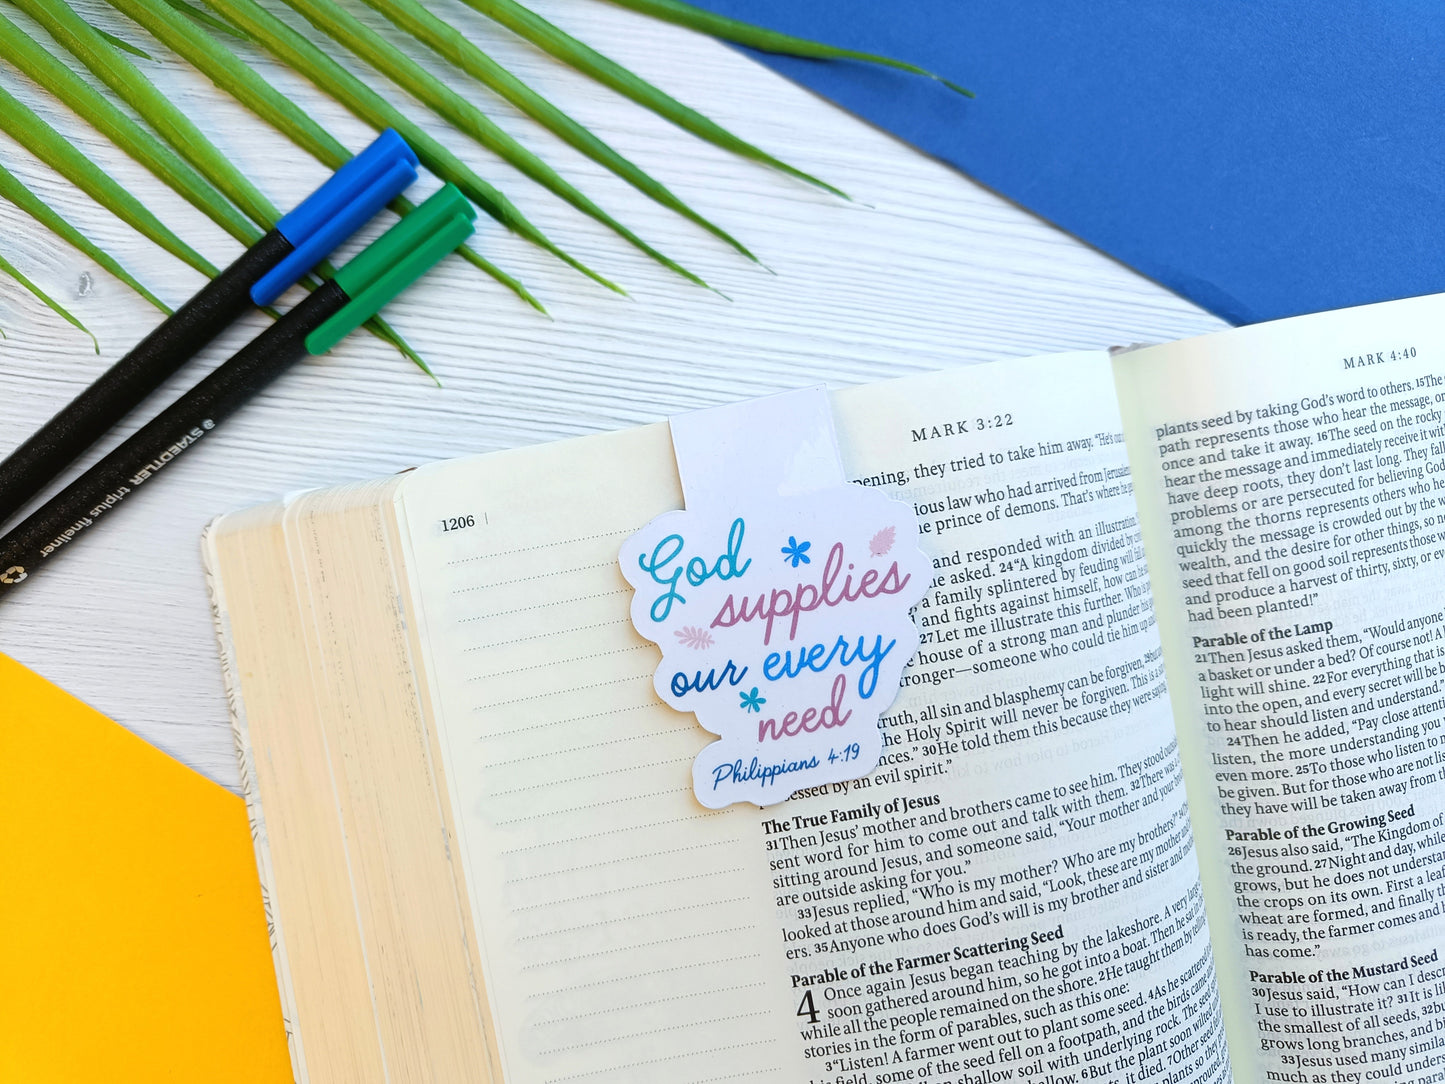 STAEDTLER triplus fineliner
1206
God
supplies
our every
need
Philippians 4:19
MARK 3:22
pening, they tried to take him away. “He’s
ious law who had arrived from Jerusalem
prince of demons. That’s where he
and responded with an illustration.
he asked. 24“A kingdom divided by
a family splintered by feuding will
and fights against himself, how can
27Let me illustrate this further. Who is
house of a strong man and plunder his
onger—someone who could tie him up
and blasphemy can be forgiven,
ruth, all sin
he Holy Spirit will never be forgiven. This is a
nces.” 30He told them this because they were saying
sessed by an evil spirit.”
The True Family of Jesus
31Then Jesus’ mother and brothers came to see him. They stood
sent word for him to come out and talk with them. 32There was
sitting around Jesus, and someone said, “Your mother and your
are outside asking for you.”
33Jesus replied, “Who is my mother? Who are my brothers?”
looked at those around him and said, “Look, these are my mother and
ers. 35Anyone who does God’s will is my brother and sister and
Parable of the Farmer Scattering Seed
4 Once again Jesus began teaching by the lakeshore. A very
soon gathered around him, so he got into a boat. Then he sat in
while all the people remained on the shore. 2He taught them by
stories in the form of parables, such as this one:
3“Listen! A farmer went out to plant some seed. 4As he scattered
field, some of the seed fell on a footpath, and the birds came
on shallow soil with underlying rock. The seed
6But the plant soon wilted
it died. 7Other seed
MARK 4:40
plants seed by taking God’s word to others. 15The
path represents those who hear the message,
once and take it away. 16The seed on the rocky
hear the message and immediately receive it
have deep roots, they don’t last long. They
problems or are persecuted for believing God’s
among the thorns represents others who
quickly the message is crowded out by the
wealth, and the desire for other things, so
seed that fell on good soil represents those
and produce a harvest of thirty, sixty, or
had been planted!”
Parable of the Lamp
21Then Jesus asked them, “Would anyone
a basket or under a bed? Of course not! A
light will shine. 22For everything that is
into the open, and every secret will be
to hear should listen and understand.”
24Then he added, “Pay close
listen, the more understanding you
even more. 25To those who listen to
be given. But for those who are not
they have will be taken away from
Parable of the Growing Seed
26Jesus also said, “The Kingdom of
the ground. 27Night and day, while
grows, but he does not
the crops on its own. First a
wheat are formed, and finally
is ready, the farmer comes and
has come.”
Parable of the Mustard Seed
30Jesus said, “How can I
I use to illustrate it? 31It is
the smallest of all seeds,
grows long branches, and
33Jesus used many
much as they could